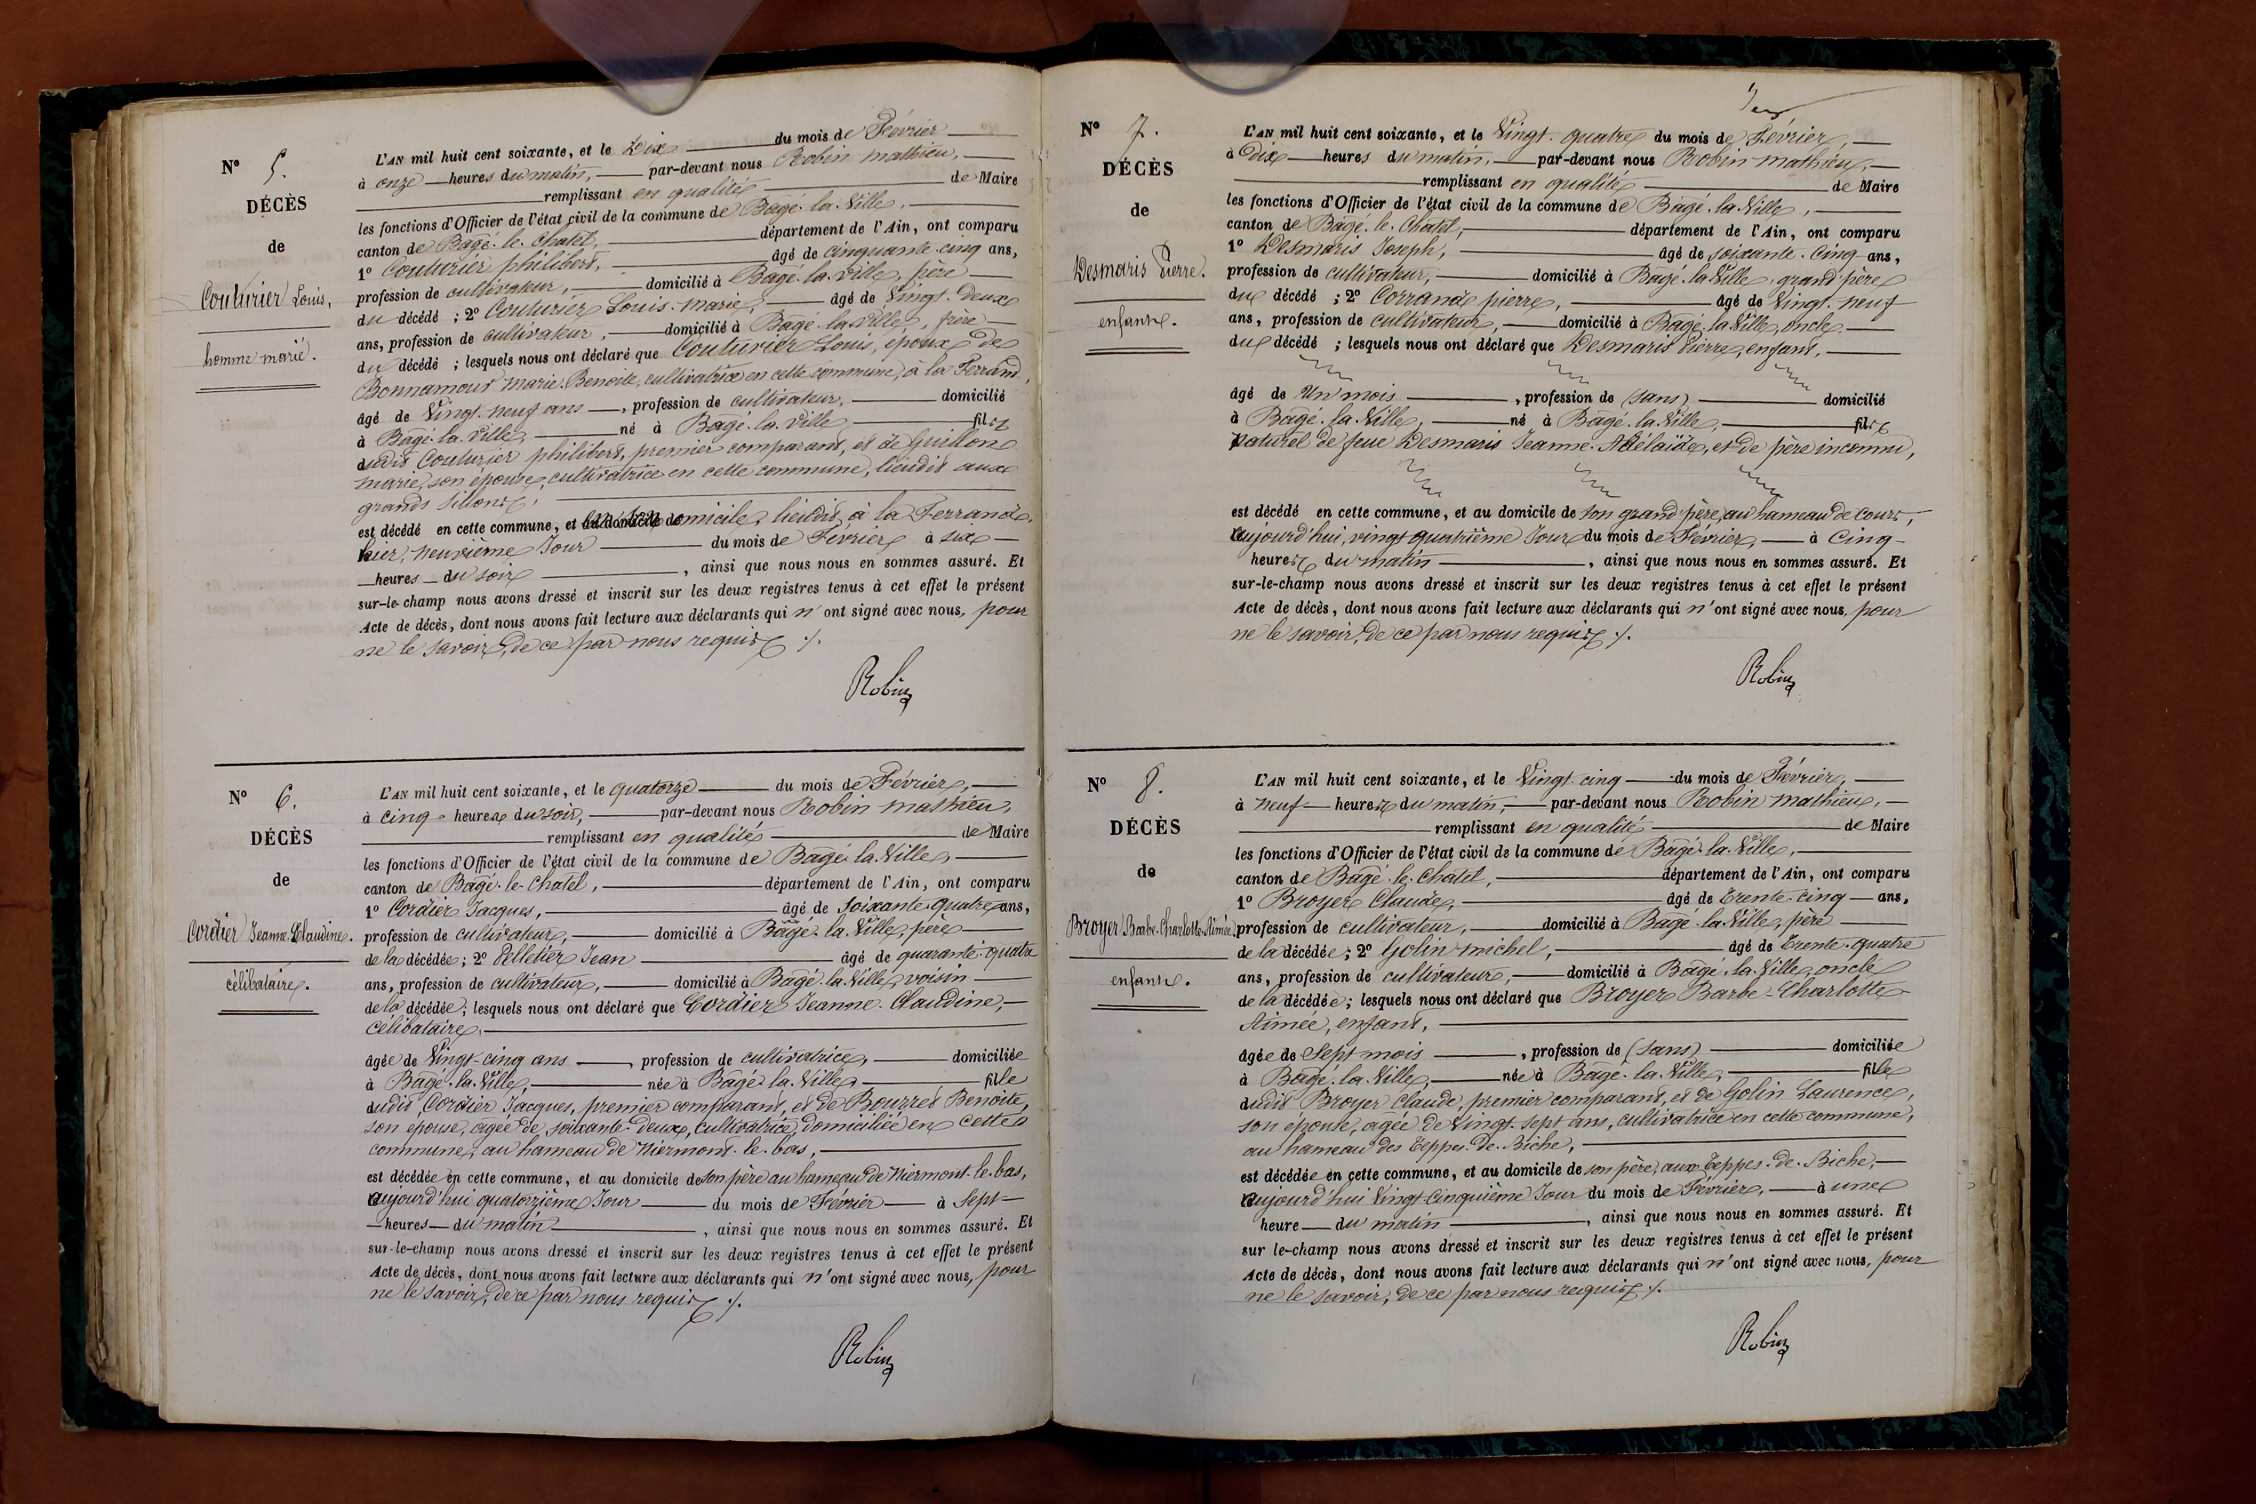 N° 5.
DÉCÈS
de
Couturier Louis,
homme marié.
L'AN mil huit cent soixante, et le Dix du mois de Février
à onze heures du matin, par-devant nous Robin mathieu,
remplissant en qualité de Maire
les fonctions d'Officier de l'état civil de la commune de Bagé-la-Ville,
canton de Bagé-le-Chatel, département de l'Ain, ont comparu
1° Couturier philibert, âgé de cinquante-cinq ans,
profession de cultivateur, domicilié à Bagé-la-Ville, père
du décédé ; 2° Couturier Louis-marie, âgé de Vingt-Deux
ans, profession de cultivateur, domicilié à Bagé-la-Ville, frère
du décédé ; lesquels nous ont déclaré que Couturier Louis, époux de
Bonnamour marie-Benoite, cultivatrice en cette commune, à la Ferrand,
âgé de Vingt-neuf ans, profession de cultivateur, domicilié
à Bagé-la-Ville, né à Bagé-la-Ville, fils
dudit Couturier philibert, premier comparant, et de Guillon
marie, son épouse, cultivatrice en cette commune, lieudit aux
grands Sillons,
est décédé en cette commune, et au domicile de domicile, lieudit à la Ferrande,
hier, neuvième Jour du mois de Février à six
heures du soir, ainsi que nous nous en sommes assuré. Et
sur-le-champ nous avons dressé et inscrit sur les deux registres tenus à cet effet le présent
Acte de décès, dont nous avons fait lecture aux déclarants qui n'ont signé avec nous, pour
ne le savoir, de ce par nous requis ./.
Robin
N° 6.
DÉCÈS
de
Cordier Jeanne-Claudine.
célibataire.
L'AN mil huit cent soixante, et le quatorze du mois de Février,
à cinq heures du soir, par-devant nous Robin mathieu,
remplissant en qualité de Maire
les fonctions d'Officier de l'état civil de la commune de Bagé-la-Ville,
canton de Bagé-le-Chatel, département de l'Ain, ont comparu
1° Cordier Jacques, âgé de soixante-quatre ans,
profession de cultivateur, domicilié à Bagé-la-Ville, père
de la décédée; 2° Pelletier Jean âgé de quarante-quatre
ans, profession de cultivateur, domicilié à Bagé-la-Ville, voisin
de la décédée; lesquels nous ont déclaré que Cordier Jeanne-Claudine,
célibataire,
âgée de Vingt-cinq ans, profession de cultivatrice, domiciliée
à Bagé-la-Ville, née à Bagé-la-Ville, fille
dudit Cordier Jacques, premier comparant, et de Bourret Benoite,
son épouse, agée de soixante-deux, cultivatrice, domiciliée en cette
commune, au hameau de Niermont-le-bas,
est décédée en cette commune, et au domicile de son père au hameau de Niermont-le-bas,
aujourd'hui quatorzième Jour du mois de Février à Sept
heures du matin, ainsi que nous nous en sommes assuré. Et
sur-le-champ nous avons dressé et inscrit sur les deux registres tenus à cet effet le présent
Acte de décès, dont nous avons fait lecture aux déclarants qui n'ont signé avec nous, pour
ne le savoir, de ce par nous requis ./.
Robin
N° 7.
DÉCÈS
de
Desmaris Pierre.
enfant.
L'AN mil huit cent soixante, et le Vingt-quatre du mois de Février,
à Dix heures du matin, par-devant nous Robin mathieu,
remplissant en qualité de Maire
les fonctions d'Officier de l'état civil de la commune de Bagé-la-Ville,
canton de Bagé-le-Chatel, département de l'Ain, ont comparu
1° Desmaris Joseph, âgé de soixante-cinq ans,
profession de cultivateur, domicilié à Bagé-la-Ville, grand'père
du décédé ; 2° Corrand pierre, âgé de Vingt-neuf
ans, profession de cultivateur, domicilié à Bagé-la-Ville, oncle
du décédé ; lesquels nous ont déclaré que Desmaris Pierre, enfant,
âgé de Un mois, profession de (sans) domicilié
à Bagé-la-Ville, né à Bagé-la-Ville, fils
naturel de feue Desmaris Jeanne-Adélaïde, et de père inconnu,
est décédé en cette commune, et au domicile de son grand'père, au hameau de cours,
aujourd'hui, vingt quatrième Jour du mois de Février, à Cinq
heures du matin, ainsi que nous nous en sommes assuré. Et
sur-le-champ nous avons dressé et inscrit sur les deux registres tenus à cet effet le présent
Acte de décès, dont nous avons fait lecture aux déclarants qui n'ont signé avec nous, pour
ne le savoir, de ce par nous requis ./.
Robin
N° 8.
DÉCÈS
de
Broyer Barbe-Charlotte-Aimée
enfant.
L'AN mil huit cent soixante, et le Vingt-cinq du mois de Février,
à neuf heures du matin, par-devant nous Robin mathieu,
remplissant en qualité de Maire
les fonctions d'Officier de l'état civil de la commune de Bagé-la-Ville,
canton de Bagé-le-Chatel, département de l'Ain, ont comparu
1° Broyer Claude, âgé de Trente-cinq ans,
profession de cultivateur, domicilié à Bagé-la-Ville, père
de la décédée; 2° Golin michel, âgé de Trente-quatre
ans, profession de cultivateur, domicilié à Bagé-la-Ville, oncle
de la décédée; lesquels nous ont déclaré que Broyer Barbe-Charlotte
Aimée, enfant,
âgée de Sept mois, profession de (sans) domiciliée
à Bagé-la-Ville, née à Bagé-la-Ville, fille
dudit Broyer Claude, premier comparant, et de Golin Laurence,
son épouse, agée de Vingt-sept ans, cultivatrice en cette commune,
au hameau des Teppes-de-Biche,
est décédée en cette commune, et au domicile de son père, aux Teppes-de-Biche,
aujourd'hui Vingt-Cinquième Jour du mois de Février, à une
heure du matin, ainsi que nous nous en sommes assuré. Et
sur le-champ nous avons dressé et inscrit sur les deux registres tenus à cet effet le présent
Acte de décès, dont nous avons fait lecture aux déclarants qui n'ont signé avec nous, pour
ne le savoir, de ce par nous requis ./.
Robin